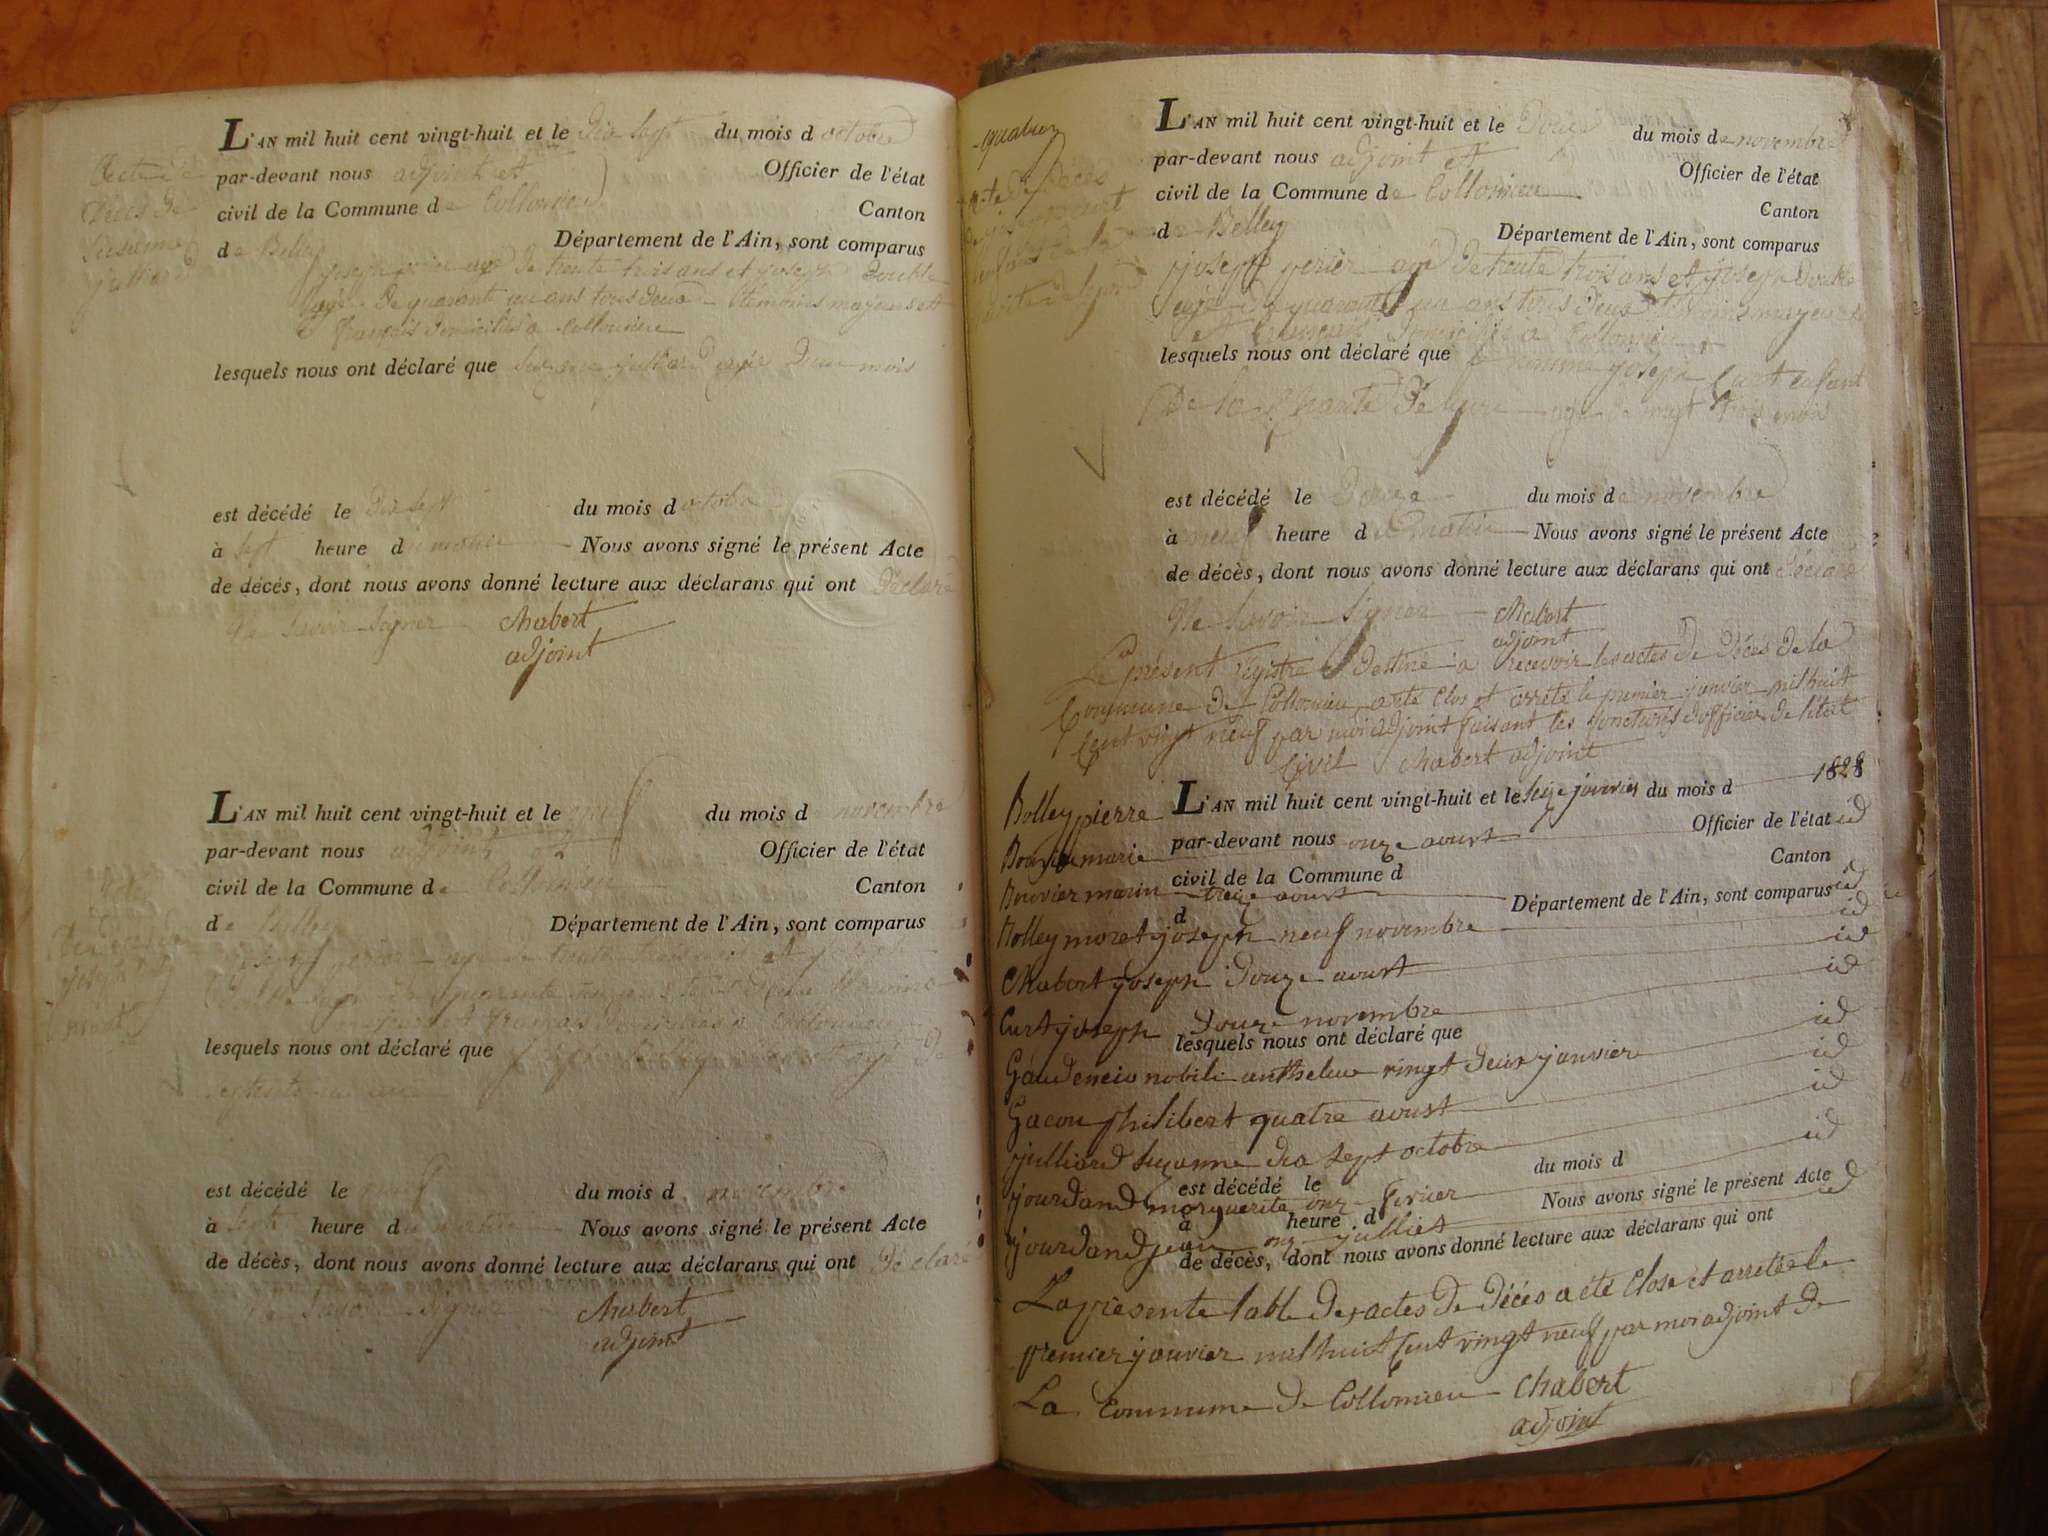 L'AN mil huit cent vingt-huit et le dix sept du mois d octobre
par-devant nous adjoint et Officier de l'état
civil de la Commune de Collomieu Canton
de Belley Département de l'Ain, sont comparus
Acte de
Décès de
Suzanne
julliard
joseph perier agé de trente trois ans et joseph
agé de quarante un ans tous deux témoins majeurs et
français domiciliés a Collomieu
lesquels nous ont déclaré que Suzanne julliard agée mois
est décédé le dix sept du mois d octobre
à sept heure du matin Nous avons signé le présent Acte
de décés, dont nous avons donné lecture aux déclarans qui ont déclaré
Ne Savoir Signer Chabert
adjoint
L'AN mil huit cent vingt-huit et le neuf du mois d novembre
par-devant nous adjoint et Officier de l'état
civil de la Commune de Collomieu Canton
de Belley Département de l'Ain, sont comparus
joseph perier agé de trente trois ans et joseph
agé de quarante un ans tous deux témoins
majeurs et français domiciliés a Collomieu
lesquels nous ont déclaré que joseph agé de
est décédé le neuf du mois d novembre
à sept heure du matin Nous avons signé le présent Acte
de décès, dont nous avons donné lecture aux déclarans qui ont déclaré
Ne Savoir Signer Chabert
adjoint
L'AN mil huit cent vingt-huit et le douze du mois de novembre
par-devant nous adjoint et Officier de l'état
civil de la Commune de Collomieu Canton
de Belley Département de l'Ain, sont comparus
acte de Décès
joseph perier agé de trente trois ans et joseph
agé de quarante un ans tous deux témoins majeurs
et français domiciliés a Collomieu
lesquels nous ont déclaré que le nommé joseph Curt enfant
De la Charité De agé de vingt trois mois
est décédé le douze du mois de novembre
à neuf heure du matin Nous avons signé le présent Acte
de décès, dont nous avons donné lecture aux déclarans qui ont déclaré
Ne Savoir Signer Chabert
adjoint
Le présent registre destiné a recevoir les actes de Décés de la
Commune De Collomieu a été Clos et arreté le premier janvier mil huit
Cent vingt neuf par moi adjoint faisant les fonctions d'officier de l'état
Civil Chabert adjoint
L'AN mil huit cent vingt-huit et le du mois d
Bolley pierre seize janvier 1828
par-devant nous Officier de l'état
marie onze aoust id
civil de la Commune d Canton
Bouvier marin treize aoust id
d Département de l'Ain, sont comparus
Bolley moret joseph neuf novembre id
Chabert joseph douze aoust id
Curt joseph douze novembre id
lesquels nous ont déclaré que
nobili anthelme vingt deux janvier id
Gacon philibert quatre aoust id
julliard Suzanne dix sept octobre id
est décédé le du mois d
jourdand marguerite onze fevrier id
à heure d Nous avons signé le présent Acte
jourdand jean onze julliet id
de décès, dont nous avons donné lecture aux déclarans qui ont
La presente table des actes de Décés a eté Close et arretée le
premier janvier mil huit Cent vingt neuf par moi adjoint de
La Commune de Collomieu Chabert
adjoint